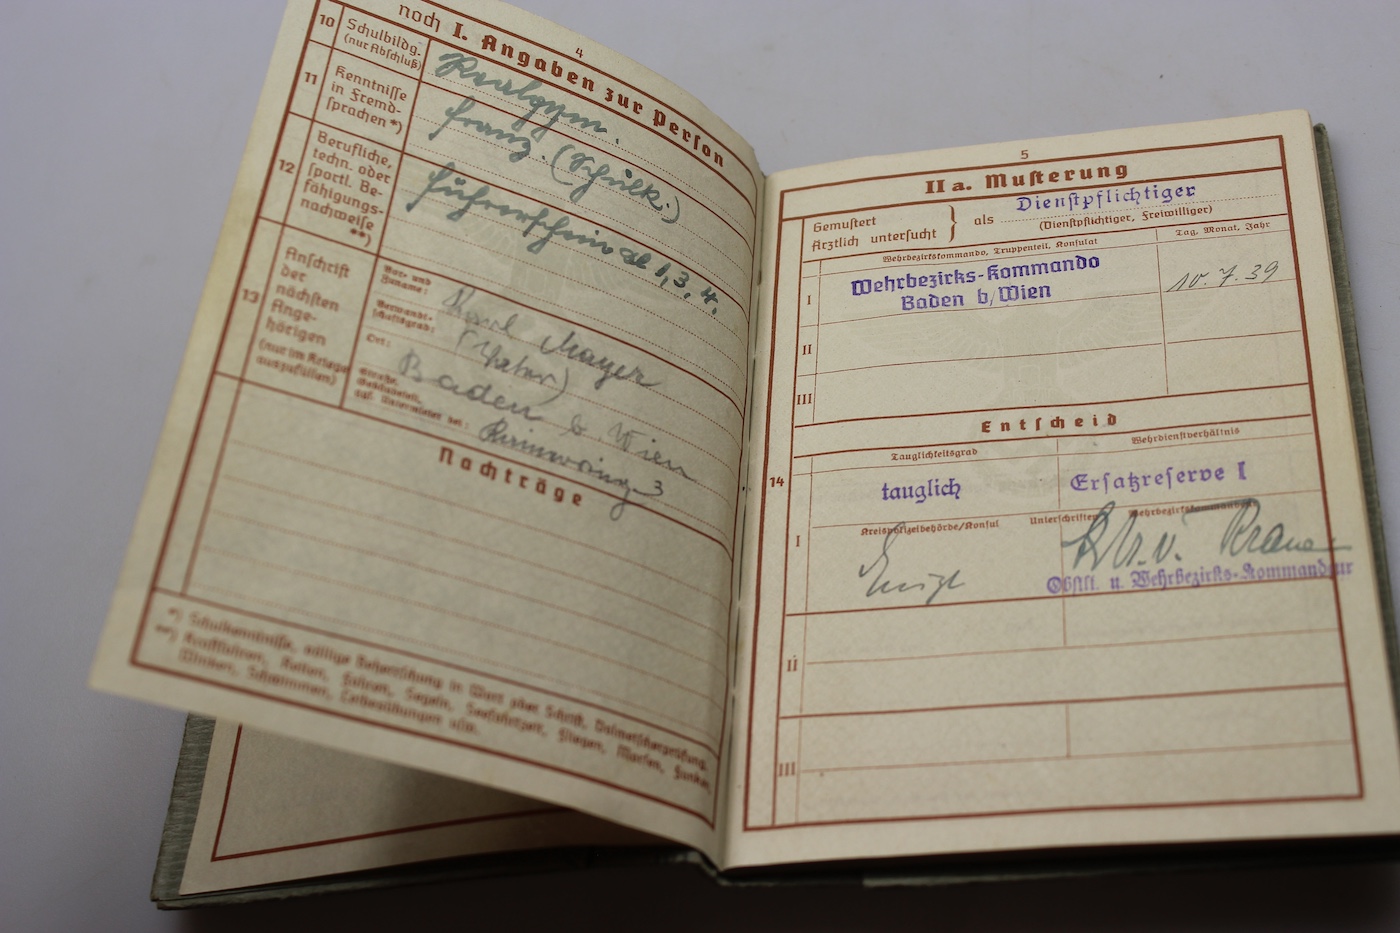 4
noch I. Angaben zur Person
10 Schulbildg. (nur Abschluß)
Realgym.
11 Kenntnisse in Fremdsprachen *)
Franz. (Schulk.)
12 Berufliche, techn. oder sportl. Befähigungsnachweise **)
Führerschein Kl 1, 3, 4.
13 Anschrift der nächsten Angehörigen (nur im Kriege auszufüllen)
Vor- und Zuname: Karl Mayer
Verwandtschaftsgrad: (Vater)
Ort: Baden b. Wien
Straße, Gebäudeteil, ggf. Untermieter bei: 3
Nachträge
*) Schulkenntnisse, völlige Beherrschung in Wort oder Schrift, Dolmetscherprüfung.
**) Kraftfahren, Reiten, Fahren, Segeln, Seefahrtzeit, Fliegen, Morsen, Funken,
Winken, Schwimmen, Leibesübungen usw.
5
IIa. Musterung
Gemustert
Ärztlich untersucht } als Dienstpflichtiger
(Dienstpflichtiger, Freiwilliger)
Wehrbezirkskommando, Truppenteil, Konsulat
Tag, Monat, Jahr
I Wehrbezirks-Kommando
Baden b/Wien
10. 7. 39
II
III
Entscheid
14
Tauglichkeitsgrad
Wehrdienstverhältnis
I tauglich
Ersatzreserve I
Kreispolizeibehörde/Konsul
Unterschriften
Wehrbezirkskommandeur
Obstlt. u. Wehrbezirks-Kommandeur
II
III